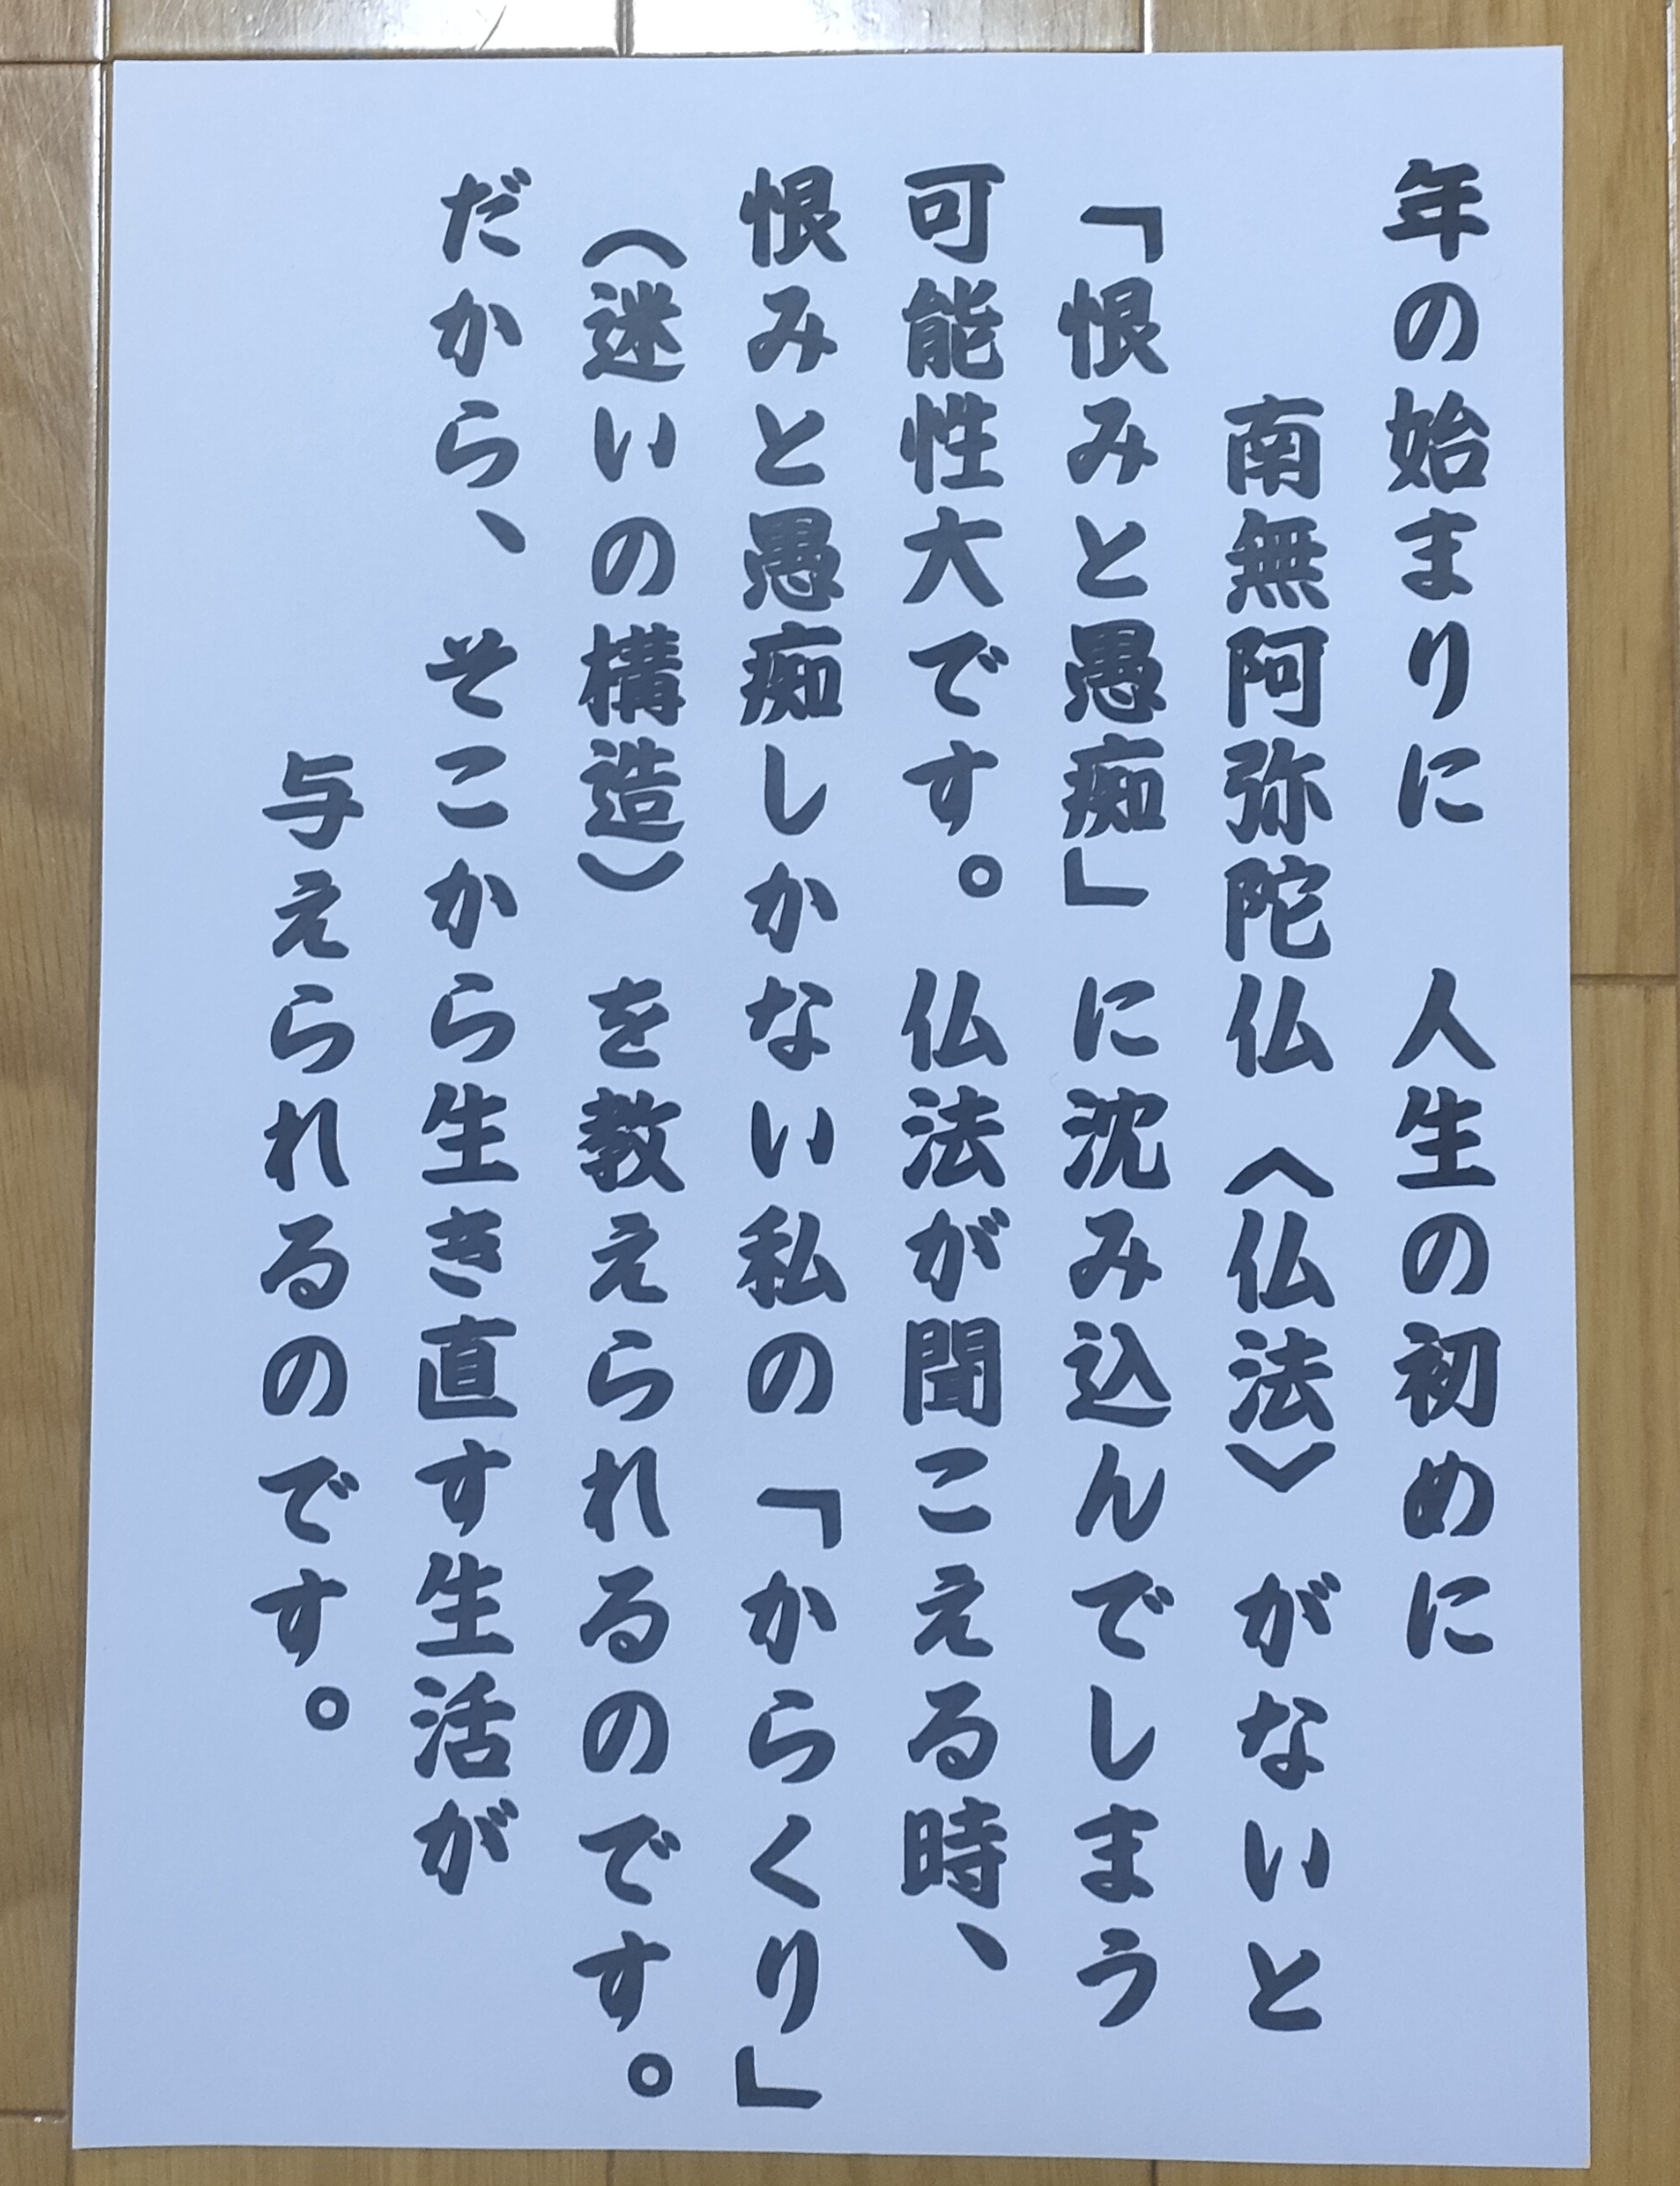 年の始まりに　人生の初めに
南無阿弥陀仏〈仏法〉がないと
「恨みと愚痴」に沈み込んでしまう
可能性大です。仏法が聞こえる時、
恨みと愚痴しかない私の「からくり」
（迷いの構造）を教えられるのです。
だから、そこから生き直す生活が
与えられるのです。